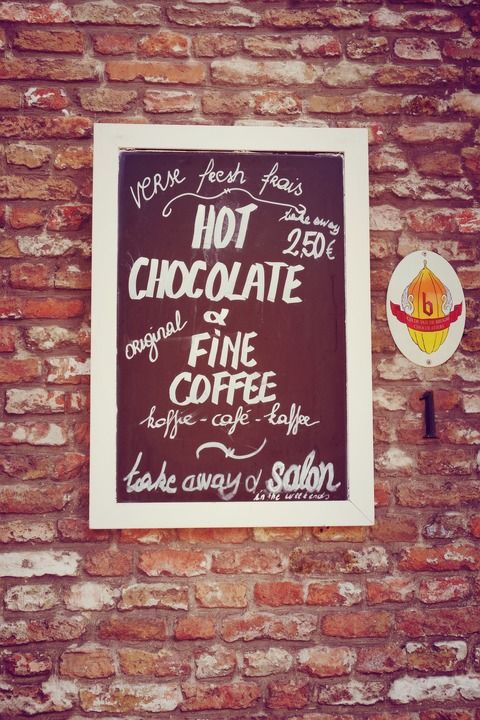 VERSE fresh frais
take away
2,50€
HOT
CHOCOLATE
&
ORIGINAL
FINE
COFFEE
koffie - café - kaffee
take away & salon
in the weekends
b
1